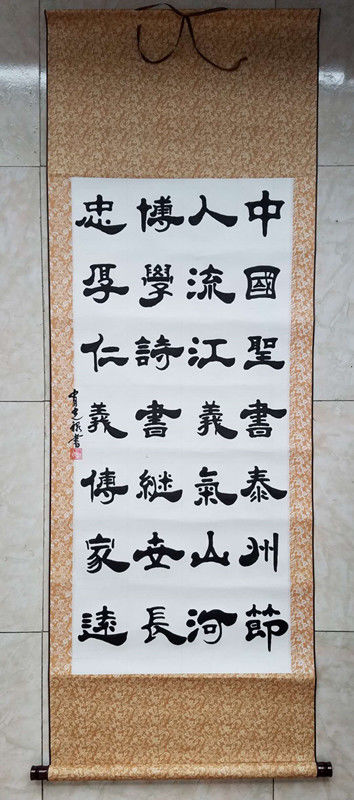 中國聖書泰州節
人流江義氣山河
博學詩書継世長
忠厚仁義傳家遠